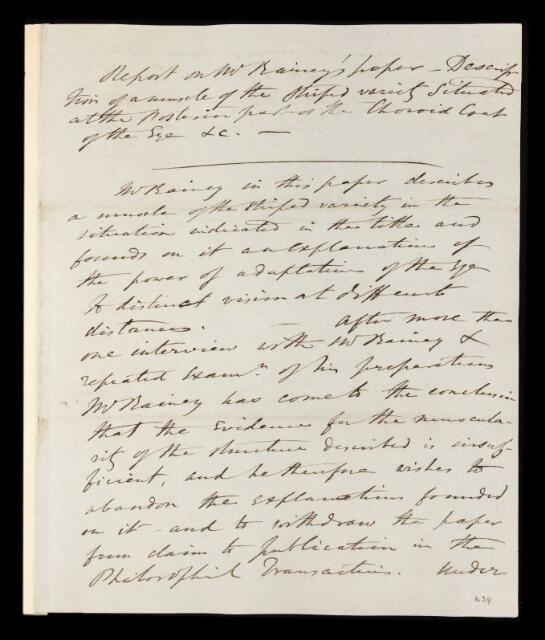 Report on Mr Rainey's paper – Descrip
tion of a muscle of the striped variety situated
at the Posterior part of the Choroid Coat
of the Eye &c. —
Mr Rainey in this paper describes
a muscle of the striped variety in the
situation indicated in the title and
founds on it an explanation of
the power of adaptation of the Eye
to distinct vision at different
distances. — After more than
one interview with Mr Rainey &
repeated examn of his preparations
Mr Rainey has come to the conclusion
that the evidence for the muscula-
rity of the structure described is insuf-
ficient, and he therefore wishes to
abandon the explanations founded
on it - and to withdraw the paper
from claim to publication in the
Philosophil Transactions. Under
439